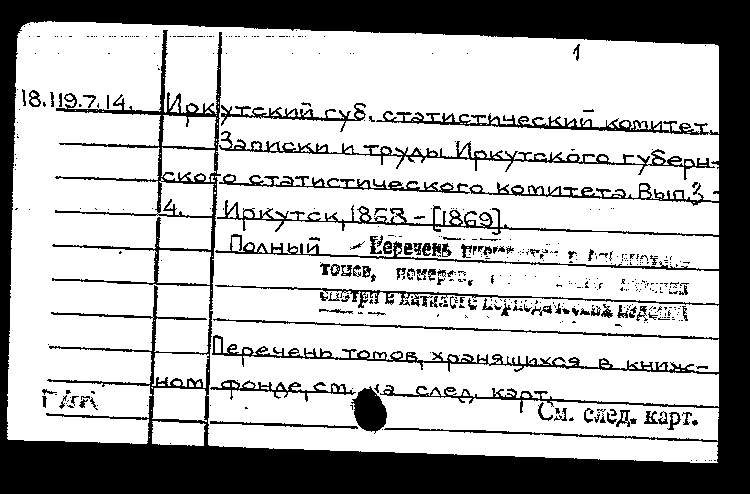 1
18.119.7.14. Иркутский губ. статистический комитет.
Записки и труды Иркутского губерн-
ского статистического комитета. Вып. 3-
4. Иркутск, 1858-[1869].
Полный - Перечень в
томов, номеров,
смотри в каталоге периодических изданий
Перечень томов, хранящихся в книж-
ном фонде, см. на след. карт.
См. след. карт.